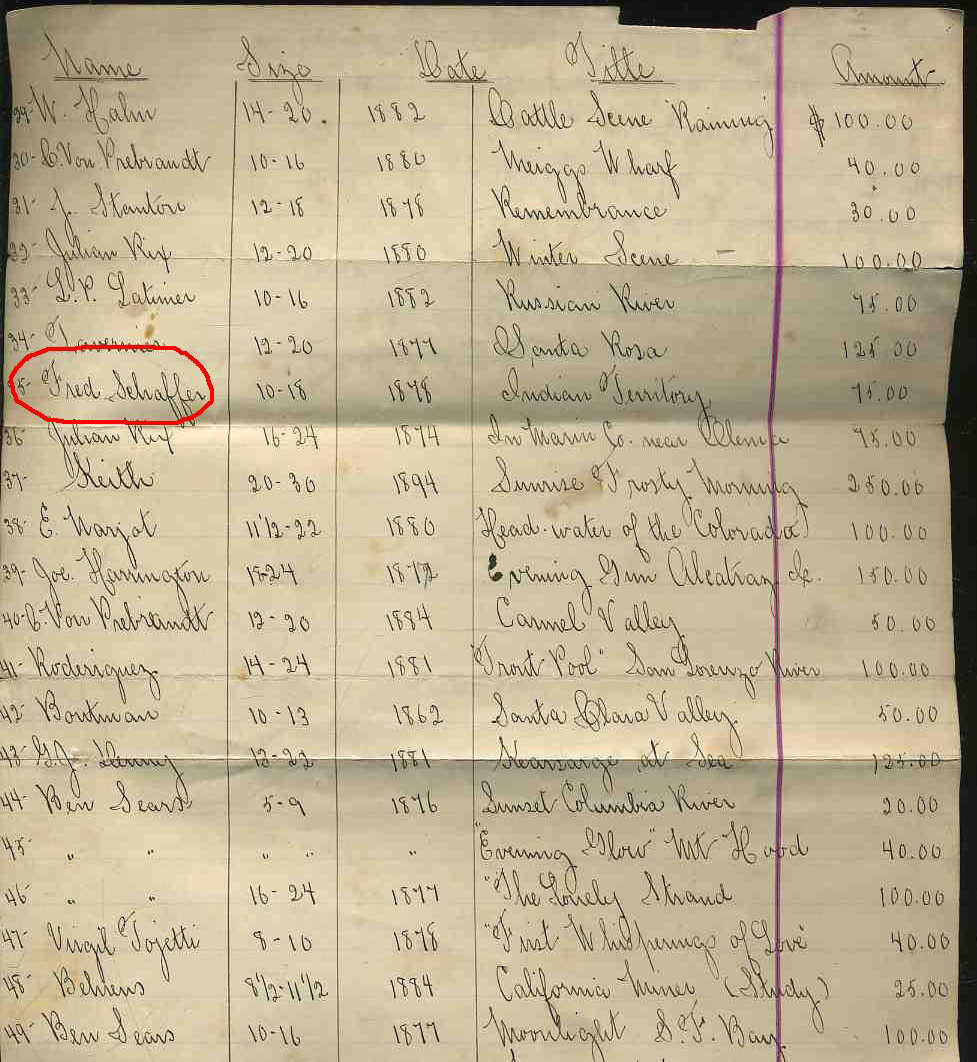 Name Size Date Title Amount
29- W. Hahn 14-20. 1882 Cattle Scene Raining $100.00
30- C. Von Prebrandt 10-16 1880 Meiggs Wharf 40.00
31- J. Stanton 12-18 1878 Remembrance 30.00
32- Julian Rix 12-20 1880 Winter Scene - 100.00
33- L.P. Latimer 10-16 1882 Russian River 75.00
34- Tavernier 12-20 1877 Santa Rosa 125.00
35- Fred Schaffer 10-18 1878 Indian Territory 75.00
36- Julian Rix 16-24 1874 In Marin Co. near Olema 75.00
37- Keith 20-30 1894 Sunrise Frosty Morning 250.00
38- E. Narjot 11 1/2-22 1880 Head-water of the Colorado 100.00
39- Joe. Harrington 18-24 1872 Evening Gun Alcatraz Is. 150.00
40- C. Von Prebrandt 12-20 1884 Carmel Valley 50.00
41- Roderiguez 14-24 1881 "Trout Pool" San Lorenzo River 100.00
42- Boutman 10-13 1862 Santa Clara Valley. 50.00
43- G.J. Denny 12-22 1881 Kearsarge at Sea 125.00
44- Ben Sears 5-9 1876 Sunset Columbia River 20.00
45- " " " " " "Evening Glow" Mt Hood 40.00
46- " " 16-24 1877 "The Lonely Strand 100.00
47- Virgil Tojetti 8-10 1878 "First Whisperings of Love 40.00
48- Behrens 8 1/2-11 1/2 1884 California Miner (Study) 25.00
49- Ben Sears 10-16 1877 Moonlight S.F. Bay 100.00